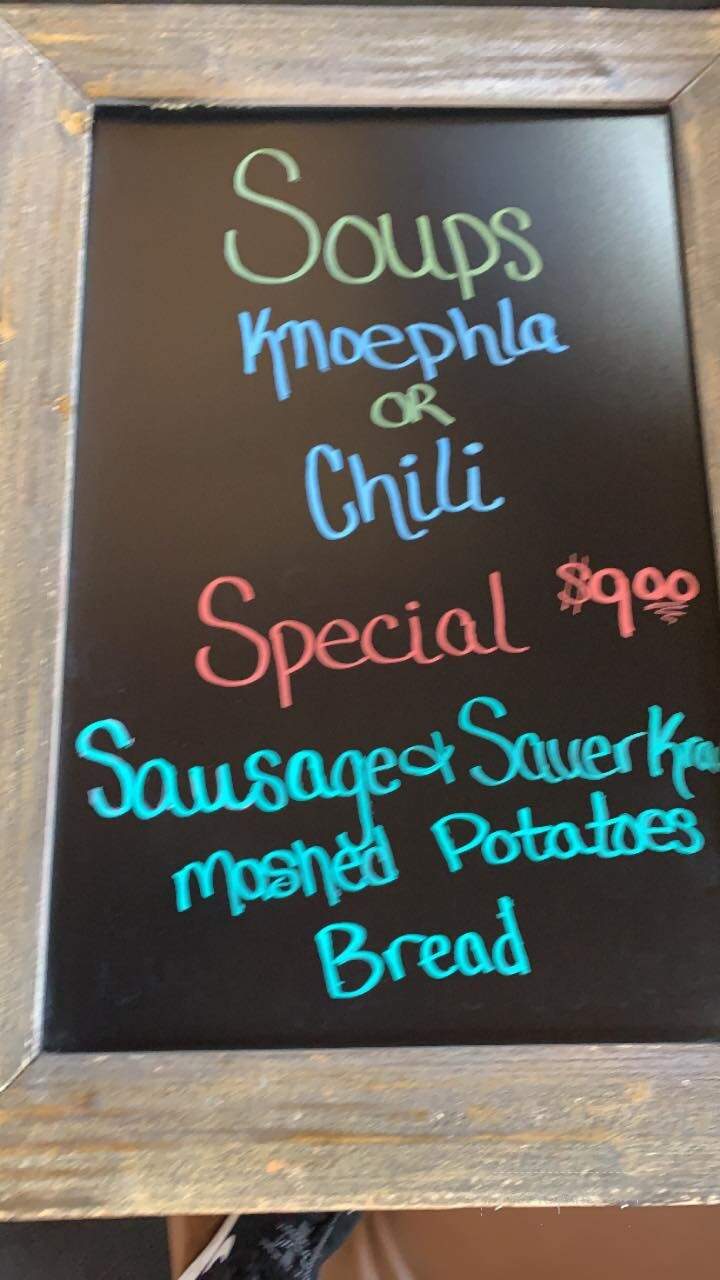 Soups
Knoephla
OR
Chili
Special $9.00
Sausage & SauerKra
Mashed Potatoes
Bread